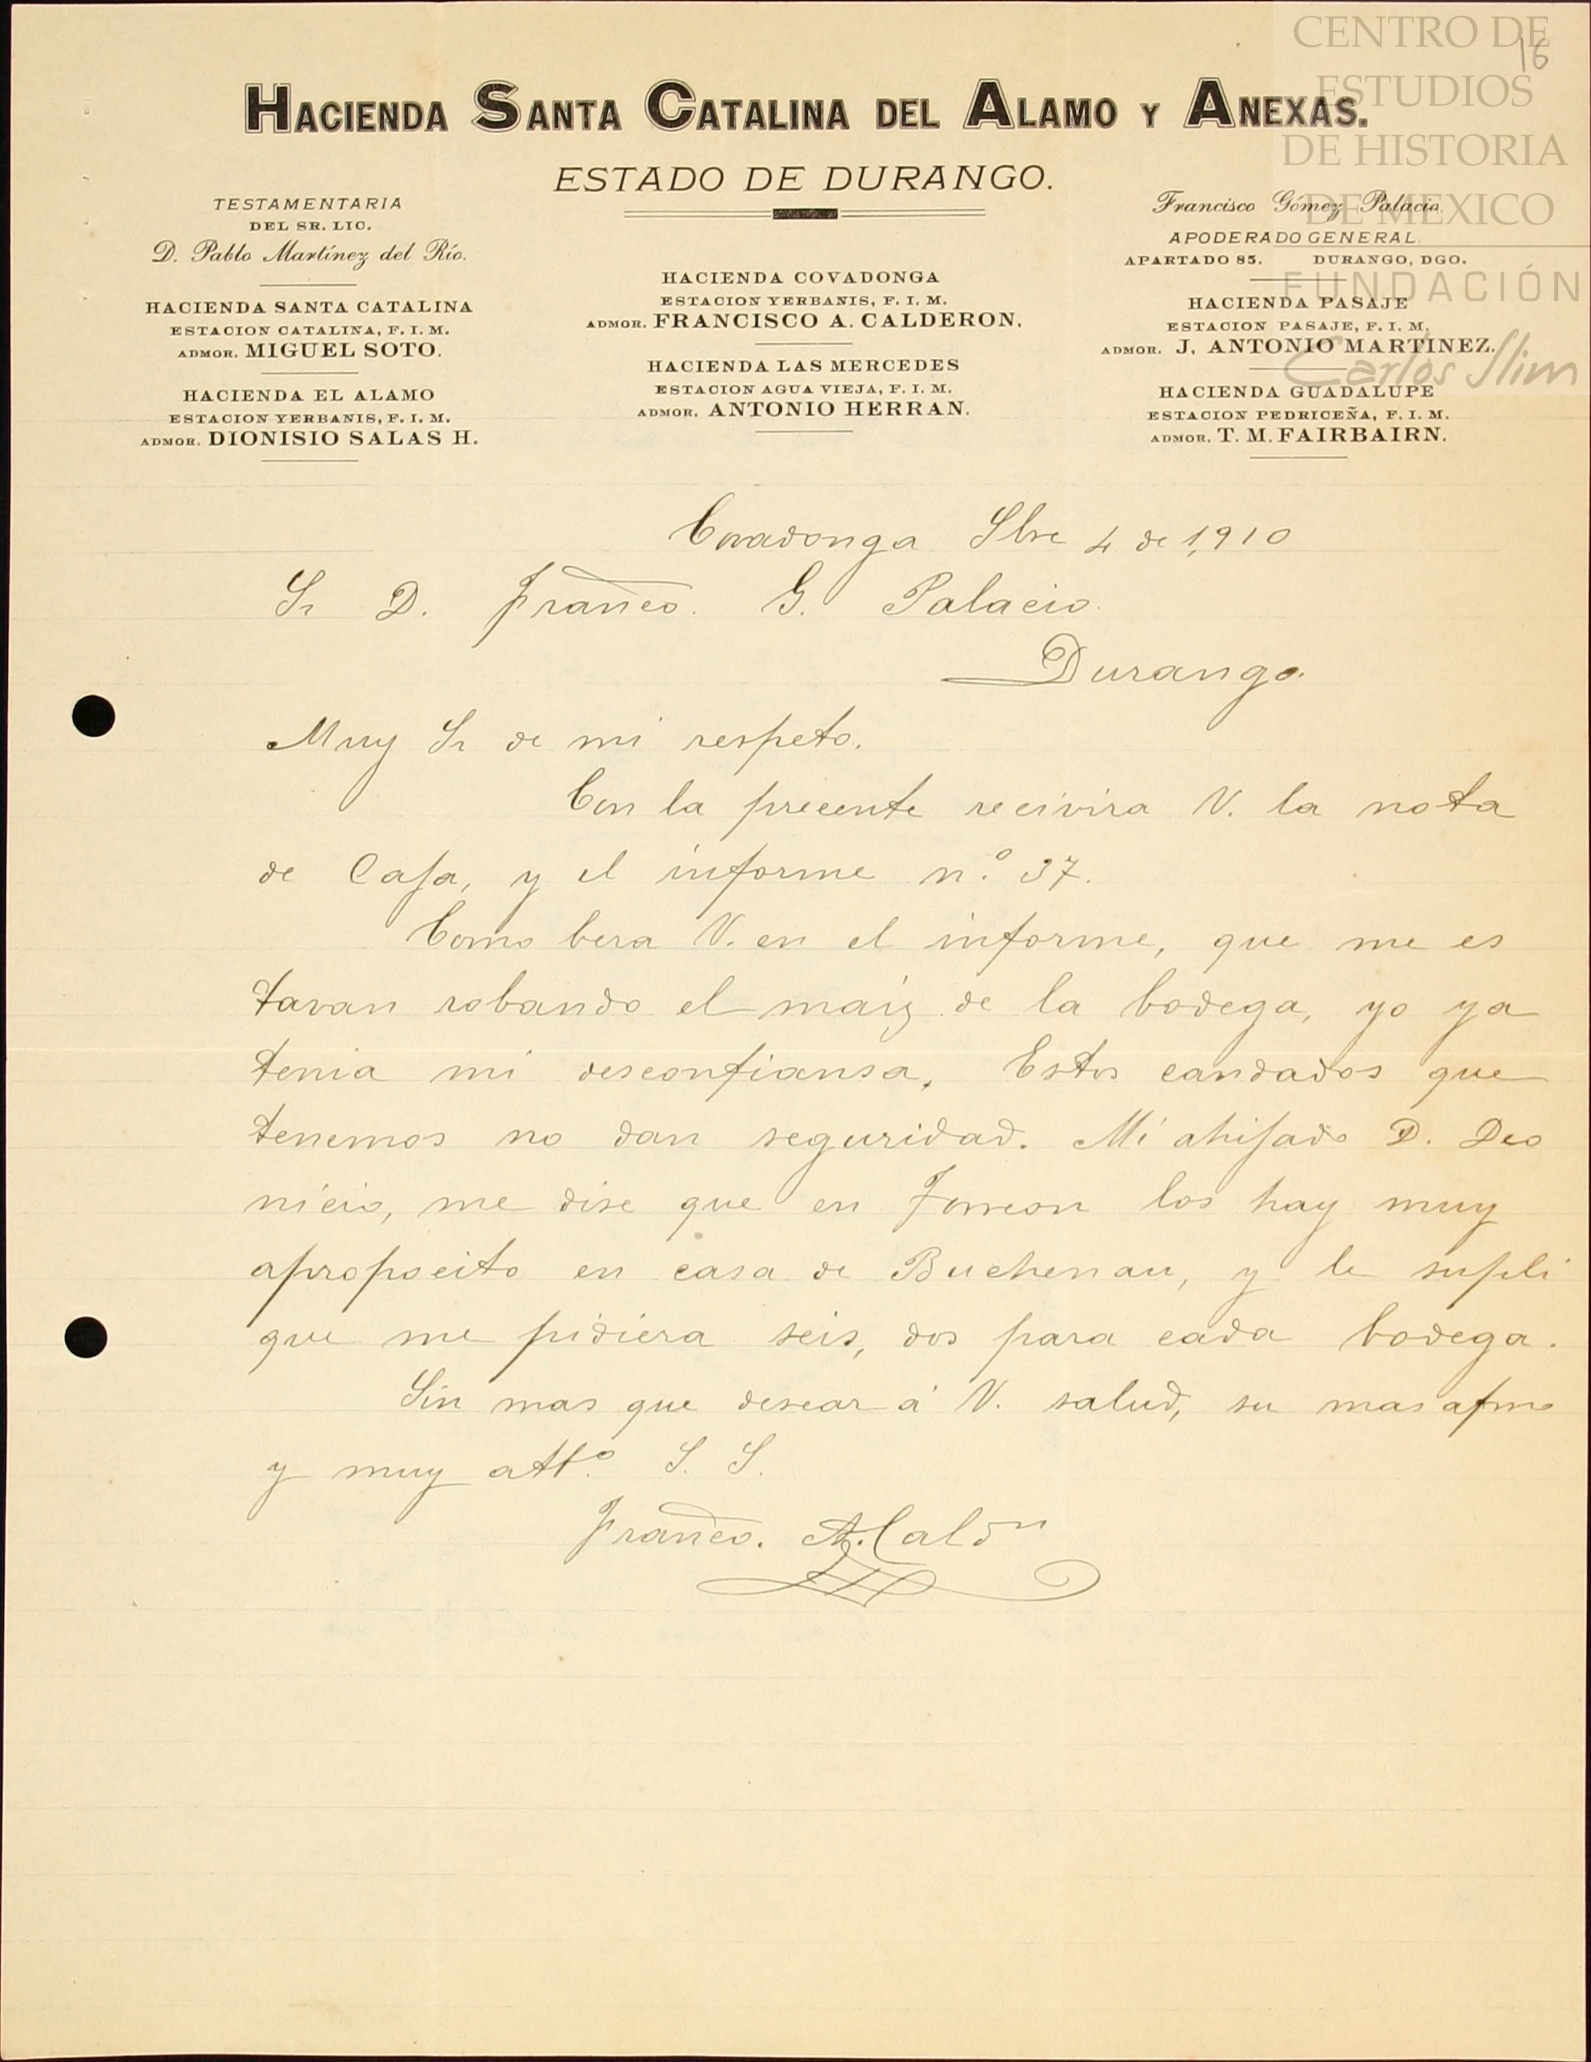 CENTRO DE
ESTUDIOS
DE HISTORIA
DE MEXICO
FUNDACIÓN
Carlos Slim
16
HACIENDA SANTA CATALINA DEL ALAMO Y ANEXAS.
ESTADO DE DURANGO.
TESTAMENTARIA
DEL SR. LIC.
D. Pablo Martínez del Río.
HACIENDA SANTA CATALINA
ESTACION CATALINA, F. I. M.
ADMOR. MIGUEL SOTO.
HACIENDA EL ALAMO
ESTACION YERBANIS, F. I. M.
ADMOR. DIONISIO SALAS H.
HACIENDA COVADONGA
ESTACION YERBANIS, F. I. M.
ADMOR. FRANCISCO A. CALDERON.
HACIENDA LAS MERCEDES
ESTACION AGUA VIEJA, F. I. M.
ADMOR. ANTONIO HERRAN.
Francisco Gómez Palacio.
APODERADO GENERAL.
APARTADO 85. DURANGO, DGO.
HACIENDA PASAJE
ESTACION PASAJE, F. I. M.
ADMOR. J. ANTONIO MARTINEZ.
HACIENDA GUADALUPE
ESTACION PEDRICEÑA, F. I. M.
ADMOR. T. M. FAIRBAIRN.
Covadonga Sbre 4 de 1,910
Sr D. Franco. G. Palacio.
Durango.
Muy Sr de mi respeto.
Con la precente recivira V. la nota
de Caja, y el informe n.º 37.
Como bera V. en el informe, que me es
tavan robando el maiz de la bodega, yo ya
tenia mi desconfiansa. Estos candados que
tenemos no dan seguridad. Mi ahijado D. Deo
nicio, me dise que en Torreon los hay muy
apropocito en casa de Buchenau, y le supli
que me pidiera seis, dos para cada bodega.
Sin mas que desear á V. salud, su mas afmo
y muy atto. S. S.
Franco. A. Caldn